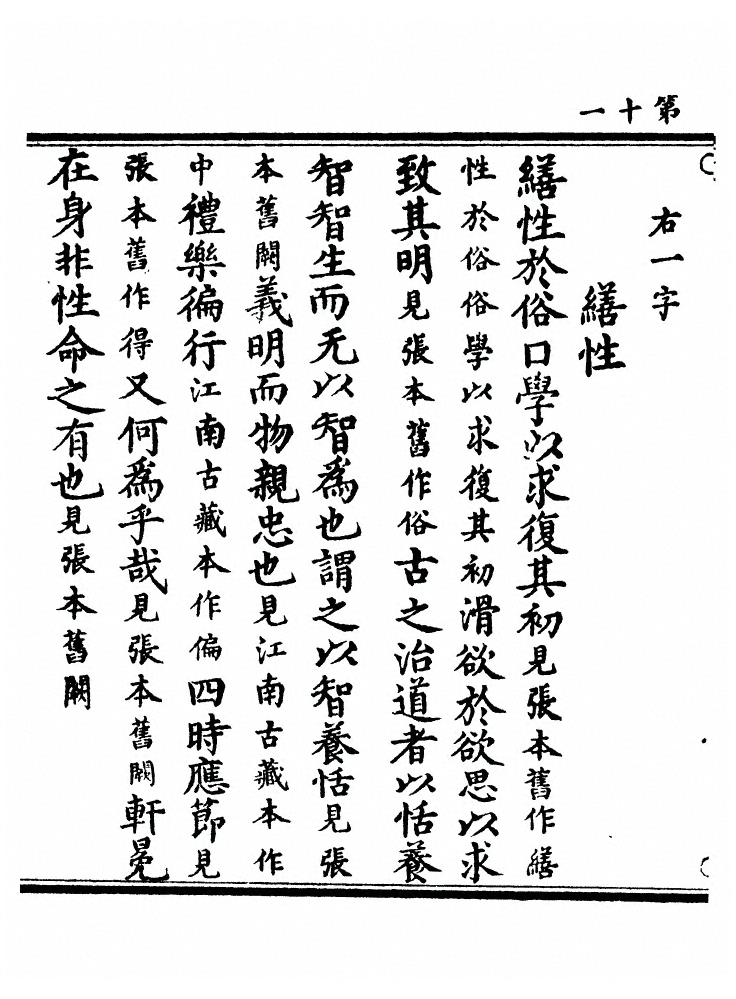 第十一
右一字
繕性
繕性於俗口學以求復其初見張本舊作繕
性於俗俗學以求復其初滑欲於欲思以求
致其明見張本舊作俗古之治道者以恬養
智智生而无以智爲也謂之以智養恬見張
本舊闕義明而物親忠也見江南古藏本作
中禮樂徧行江南古藏本作偏四時應節見
張本舊作得又何爲乎哉見張本舊闕軒冕
在身非性命之有也見張本舊闕